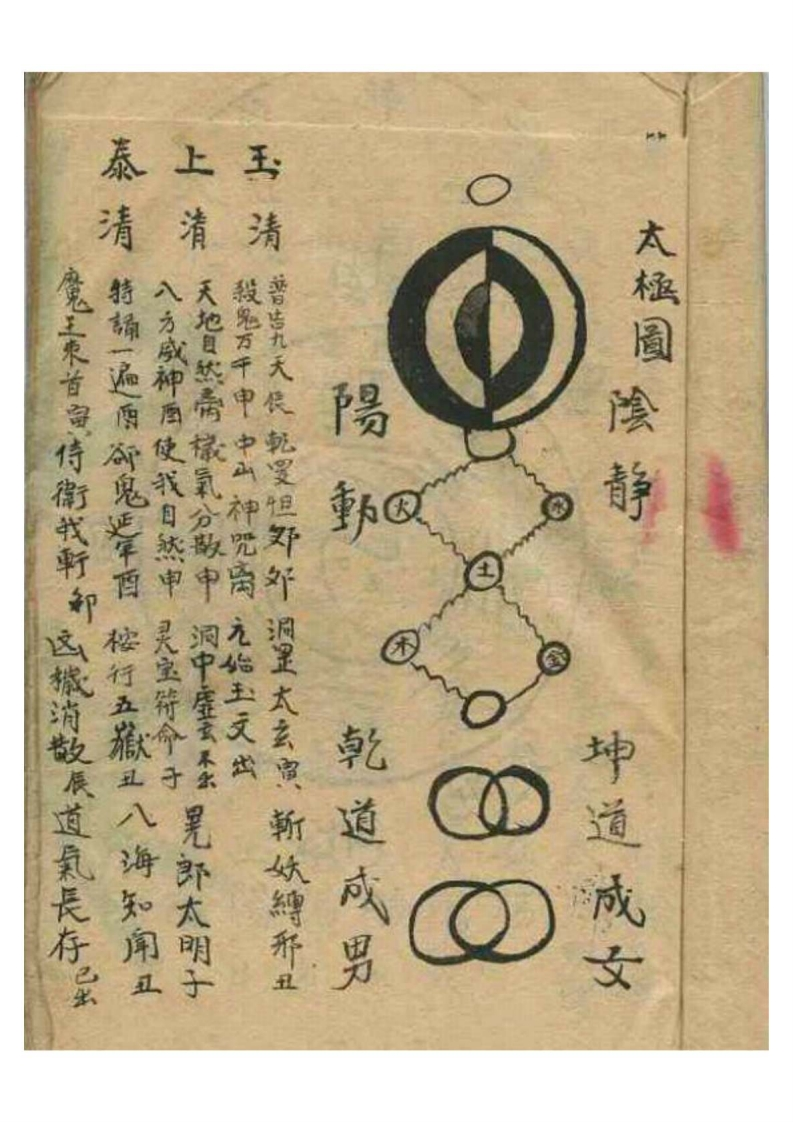 太極圖
陰靜
坤道成女
火
水
土
木
金
陽動
乾道成男
玉清
上清
泰清
普告九天 乾罡怛郊郊 洞罡太玄寅 斬妖縛邪丑
殺鬼万千申 中山神咒离 元始玉文出
天地自然 穢氣分散申 洞中虛玄 晃郎太明子
八方威神酉 使我自然申 灵宝符命子
特誦一遍酉 郤鬼延年酉 桉行五嶽丑 八海知聞丑
魔王束首寅 侍衛我軒卯 凶穢消散辰 道氣長存巳出